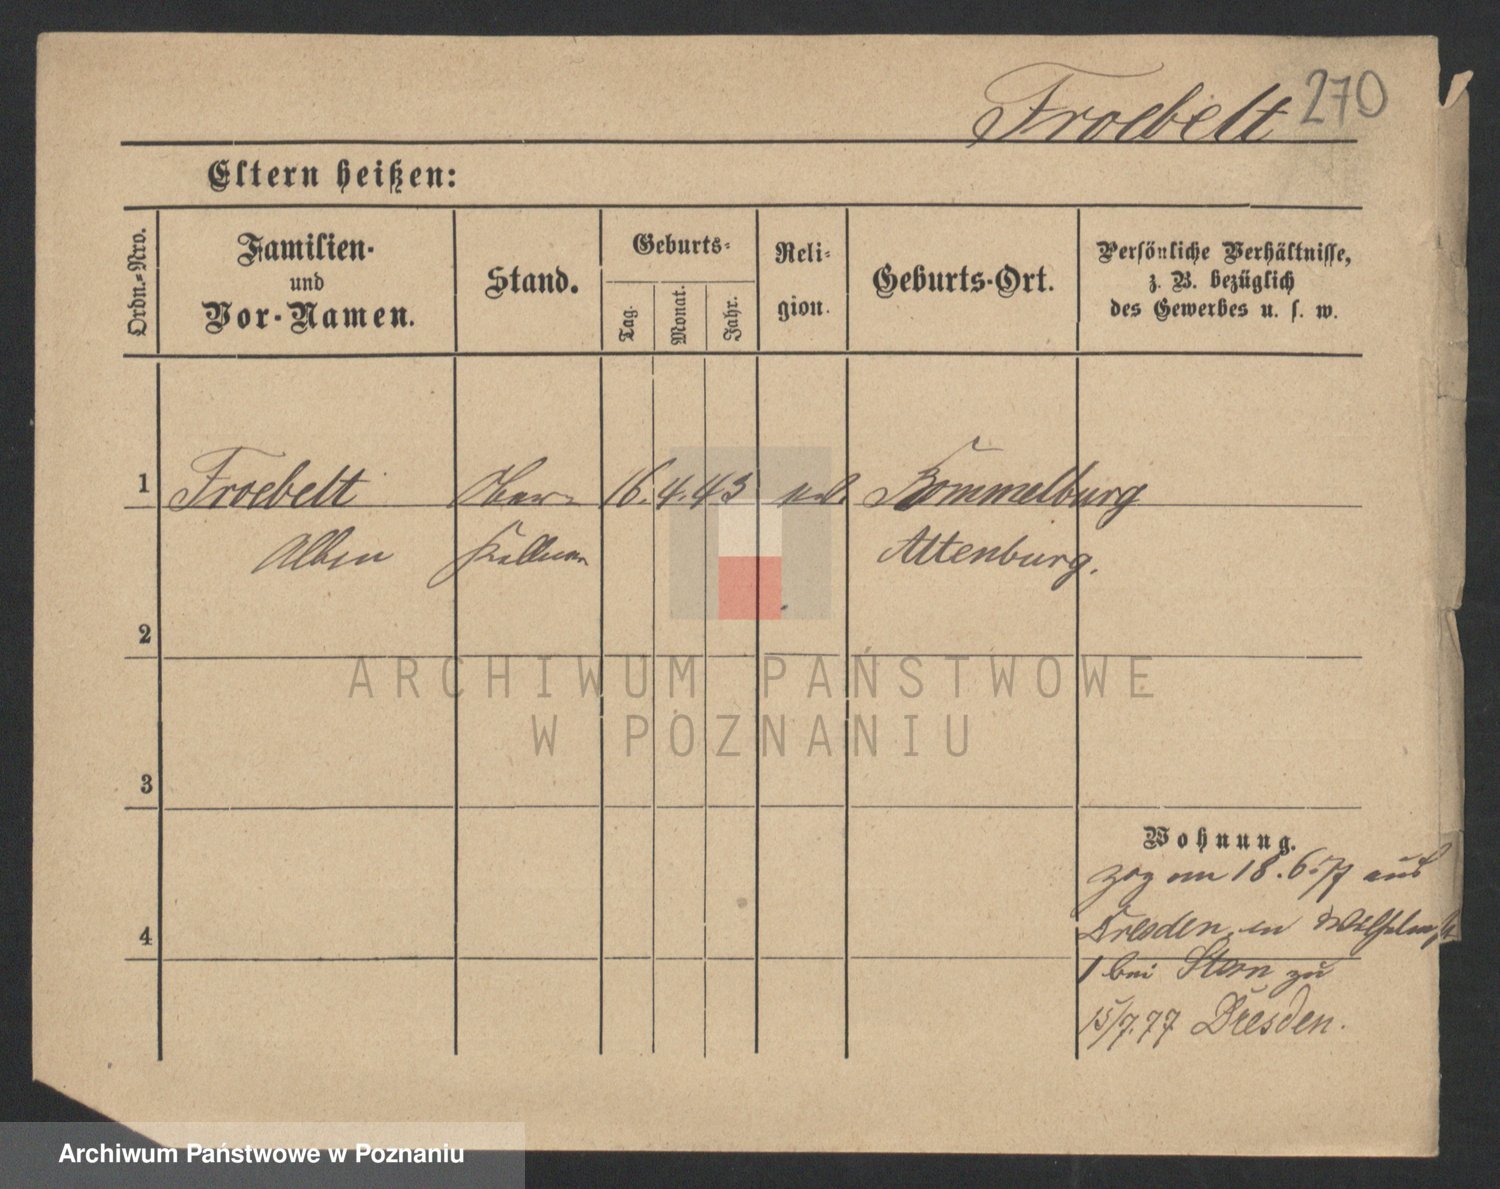 Froebelt 270
Eltern heißen:
Ordn.-Nro.
Familien-
und
Vor-Namen.
Stand.
Geburts-
Tag.
Monat.
Jahr.
Reli-
gion.
Geburts-Ort.
Persönliche Verhältnisse,
z. B. bezüglich
des Gewerbes u. s. w.
1 Froebelt Ober- 16. 4. 43 Bommelburg
Albin Kellner Altenburg.
2
ARCHIWUM PAŃSTWOWE
W POZNANIU
3
Wohnung.
zog am 18.6.77 aus
4
Dresden, in Wilhelmstr
1 bei Stern zu
15/7.77 Dresden.
Archiwum Państwowe w Poznaniu